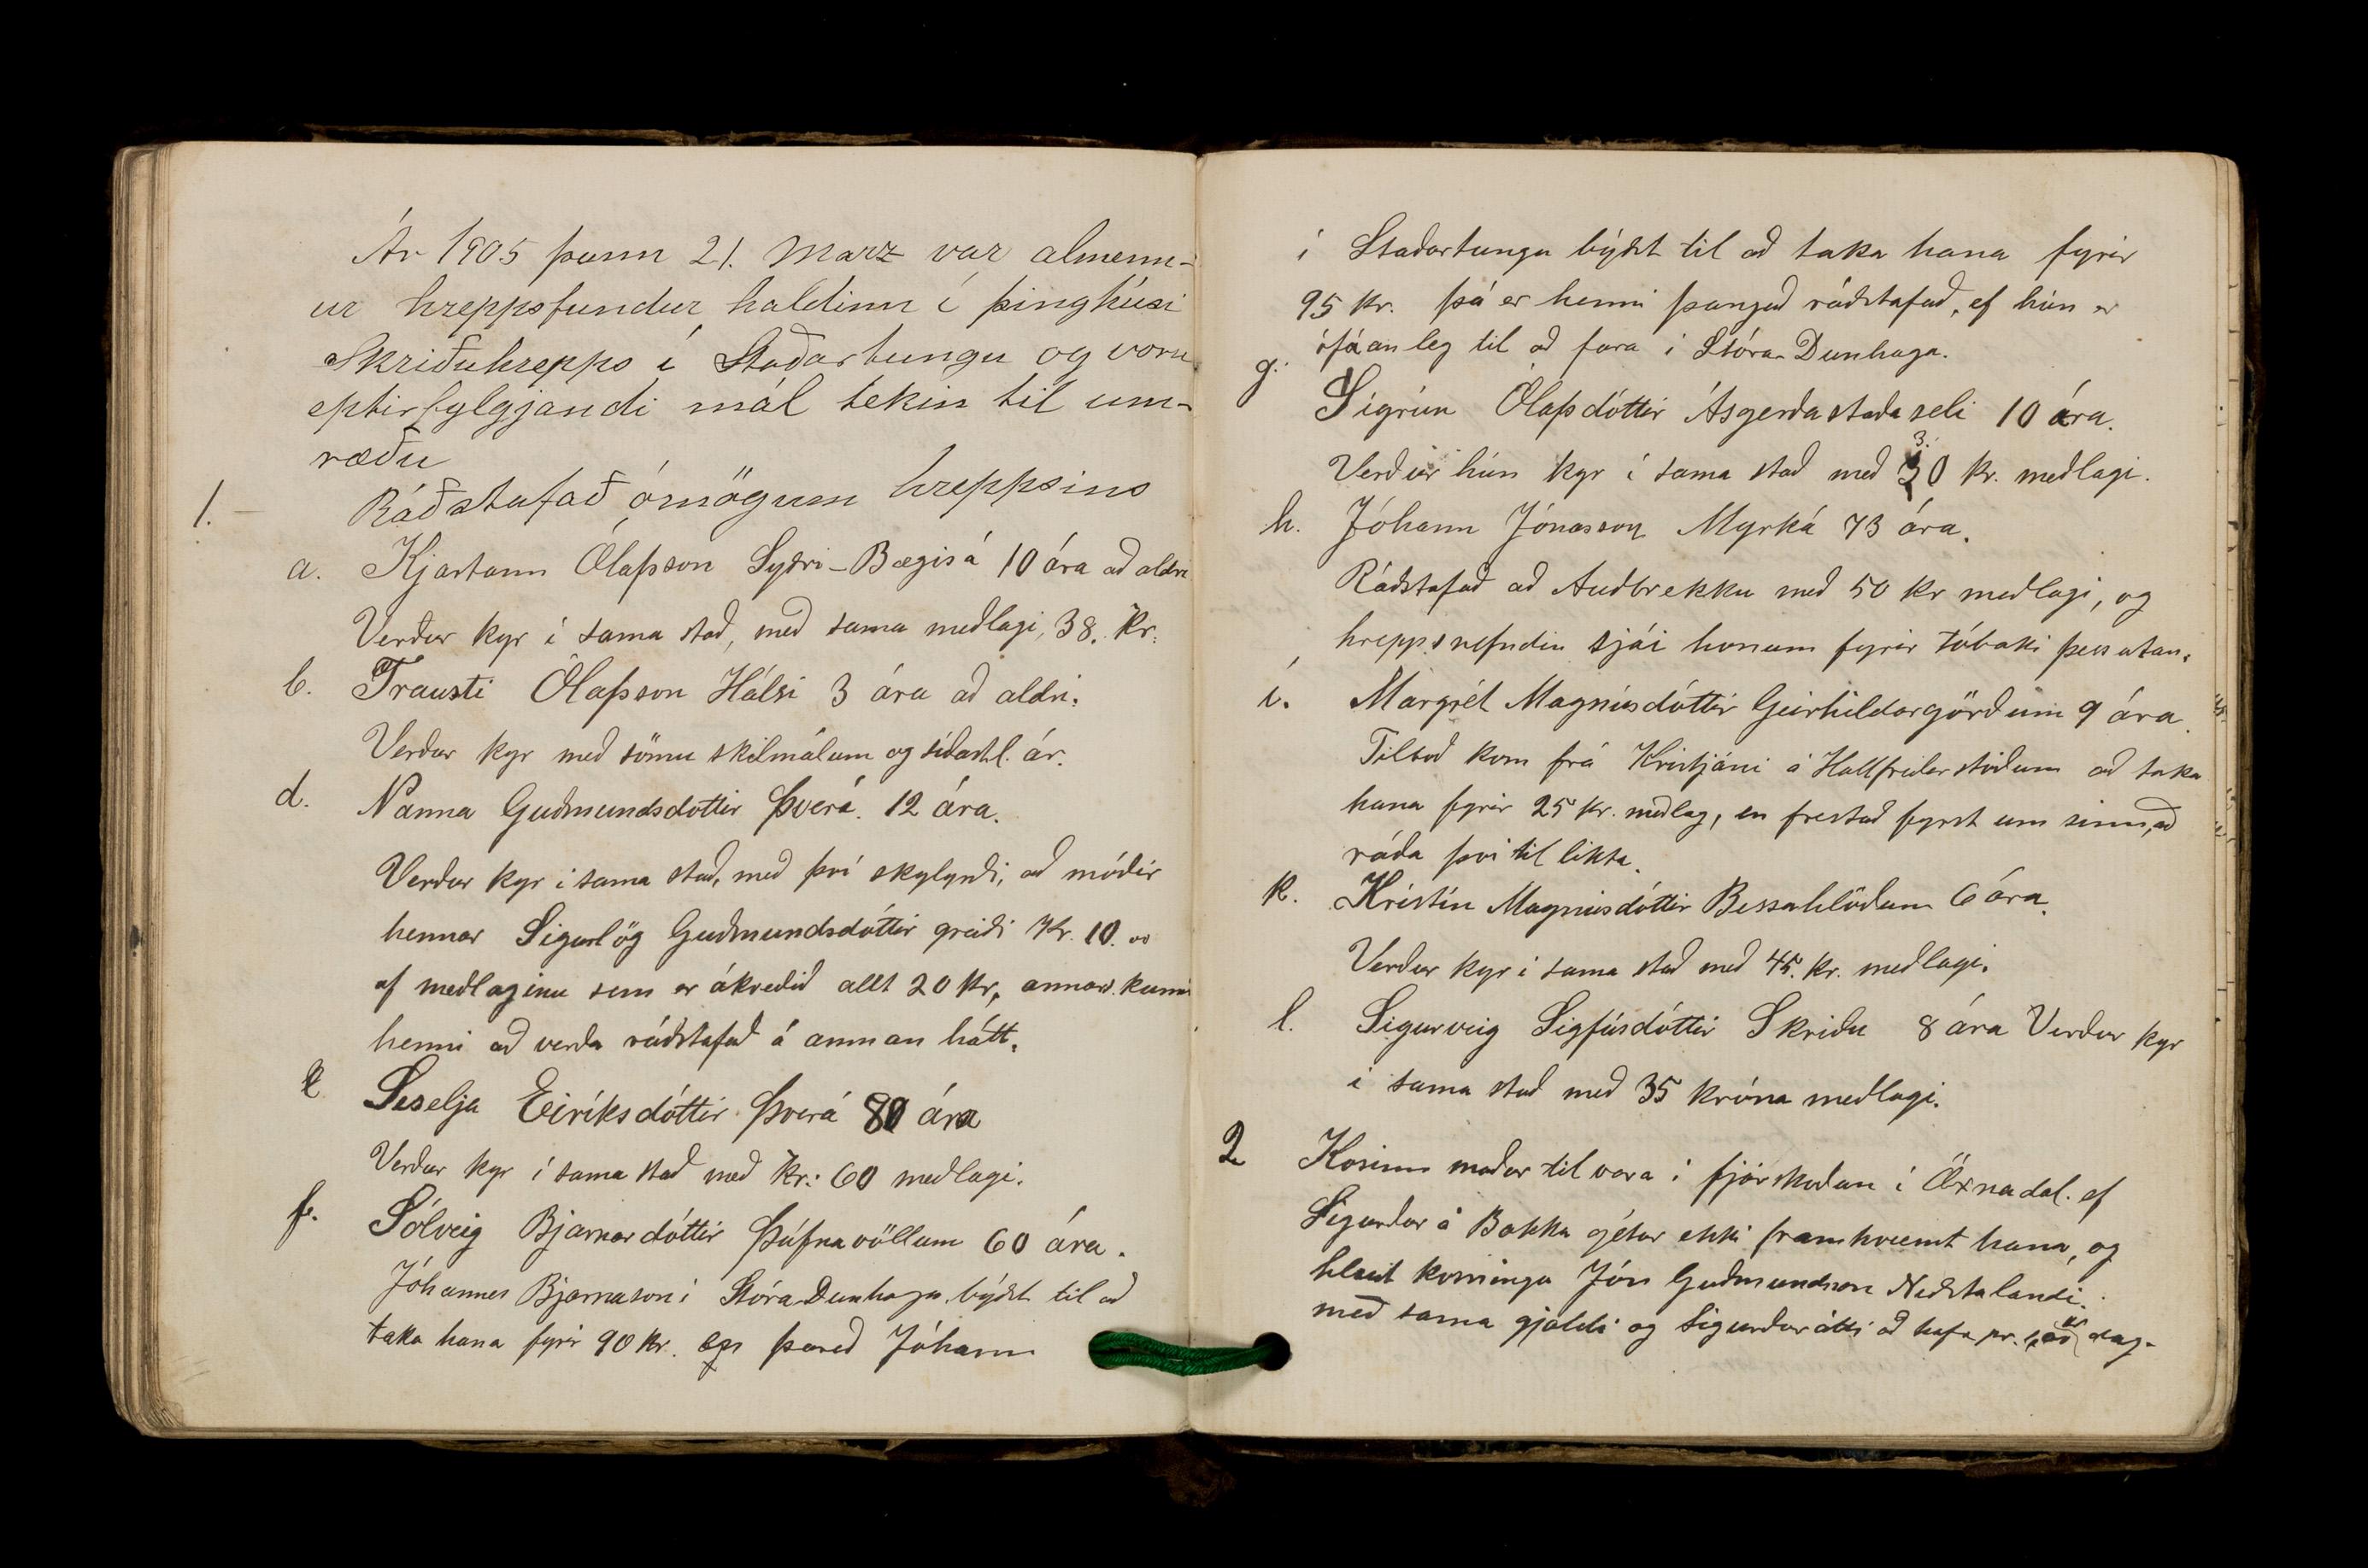 Ár 1905 þann 21. Marz var almenn-
ur hreppsfundur haldinn í þinghúsi
Skriðuhrepps í Staðartungu og voru
eptirfylgjandi mál tekin til um-
ræðu
1. Ráðstafað ómögum hreppsins
a. Kjartann Ólafsson Syðri-Bægisá 10 ára að aldri
Verður kyr í sama stað, með sama meðlagi, 38. Kr.
b. Trausti Ólafsson Hálsi 3 ára að aldri.
Verður kyr með sömu skilmálum og síðastl. ár.
d. Nanna Guðmundsdottir Þverá. 12 ára.
Verður kyr i sama stað, með því skylyrði, að móðir
hennar Sigurlög Guðmundsdóttir greiði Kr. 10.00
af meðlaginu sem er ákveðið allt 20 Kr, annars kunni
henni að verða ráðstafað á annan hátt.
e Seselja Eiríksdóttir Þverá 80 ára
Verður kyr í sama stað með Kr: 60 meðlagi.
f. Sólveig Bjarnardóttir Þúfnavöllum 60 ára.
Jóhannes Bjarnason í Stóra-Dunhaga býðst til að
taka hana fyrir 90 Kr. en það Jóhann
í Staðartungu býðst til að taka hana fyrir
95 Kr. þá er henni þangað ráðstafað, ef hún er
ófáanleg til að fara í Stóra-Dunhaga.
g. Sigrún Ólafsdóttir Ásgerðastaðaseli 10 ára.
Verður hún kyr í sama stað með 30 Kr. meðlagi.
3.
h. Jóhann Jónasson Myrká 73 ára.
Ráðstafað að Auðbrekku með 50 Kr meðlagi, og
hreppsnefndin sjái honum fyrir tóbaki þess utan.
i. Margrét Magnúsdóttir Geirhildargörðum 9 ára.
Tilboð kom frá Kristjáni á Hallfríðarstöðum að taka
hana fyrir 25 Kr. meðlag, en frestað fyrst um sinn, að
ráða því til likta.
k. Kristín Magnúsdóttir Bessahlöðum 6 ára.
Verður kyr í sama stað með 45. Kr. meðlagi.
l. Sigurveig Sigfúsdóttir Skriðu 8 ára Verður kyr
í sama stað með 35 króna meðlagi.
2 Kosinn maður til vara í fjárskoðun í Öxnadal. ef
Sigurður á Bakka gétur ekki framkvæmt hana, og
hlaut kosningu Jón Guðmundsson Neðstalandi.
með sama gjaldi og Sigurður átti að hafa dag-